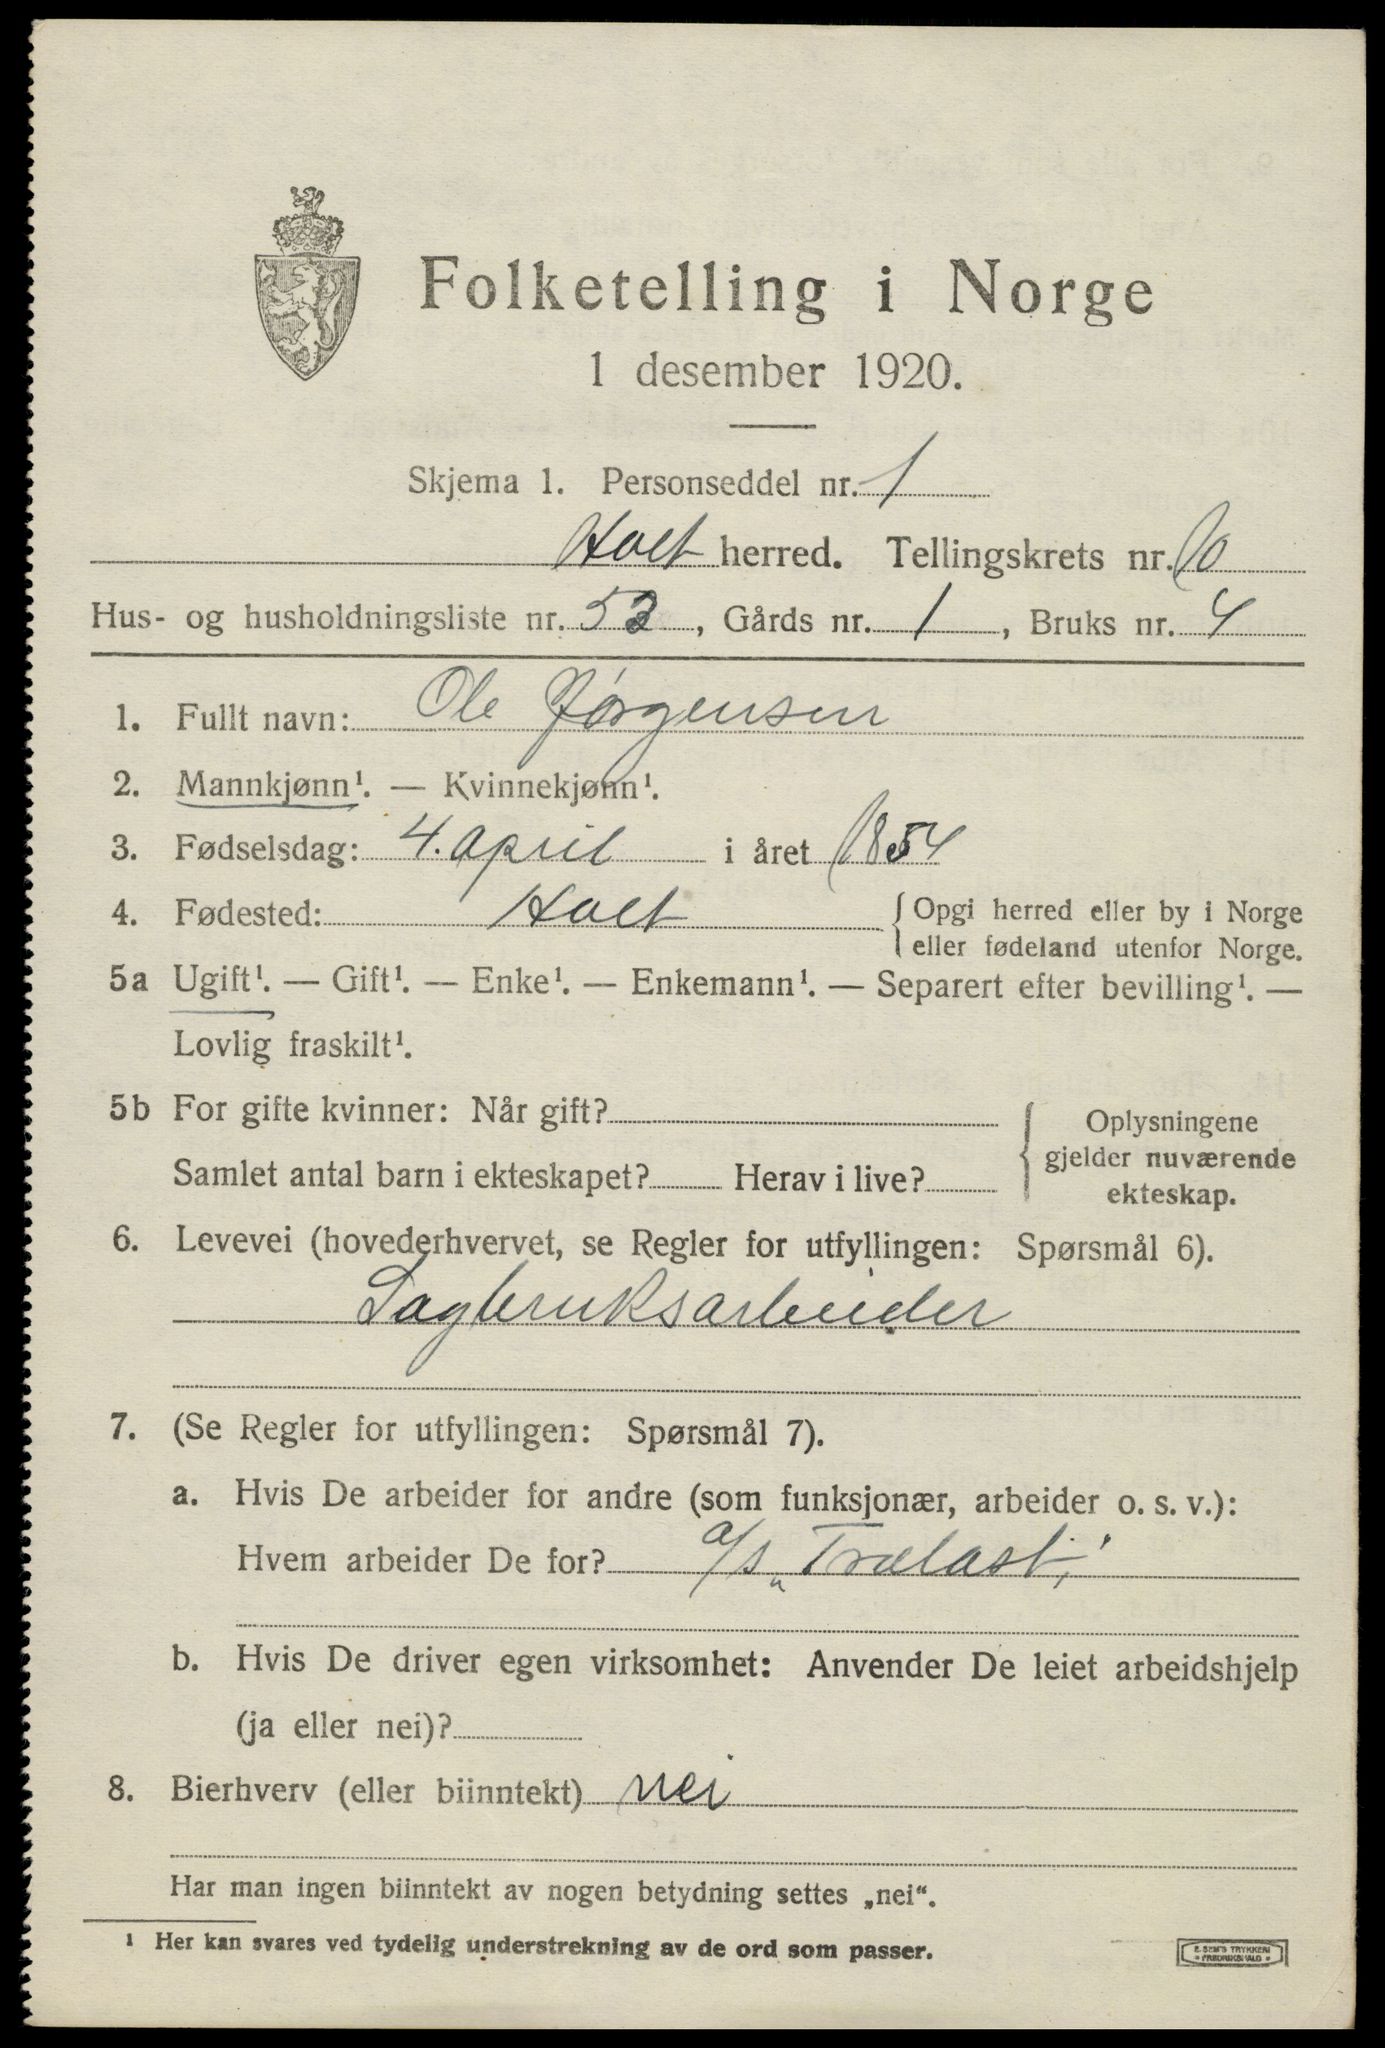 Folketelling i Norge
1 desember 1920.
Skjema 1. Personseddel nr. 1
Holt herred. Tellingskrets nr. 10
Hus- og husholdningsliste nr. 52, Gårds nr. 1, Bruks nr. 4
1. Fullt navn: Ole Jørgensen
2. Mannkjønn¹. — Kvinnekjønn¹.
3. Fødselsdag: 4. april i året 1854
4. Fødested: Holt { Opgi herred eller by i Norge
eller fødeland utenfor Norge.
5a Ugift¹. — Gift¹. — Enke¹. — Enkemann¹. — Separert efter bevilling¹. —
Lovlig fraskilt¹.
5b For gifte kvinner: Når gift? { Oplysningene
gjelder nuværende
Samlet antal barn i ekteskapet? Herav i live?
ekteskap.
6. Levevei (hovederhvervet, se Regler for utfyllingen: Spørsmål 6).
Sagbruksarbeider
7. (Se Regler for utfyllingen: Spørsmål 7).
a. Hvis De arbeider for andre (som funksjonær, arbeider o. s. v.):
Hvem arbeider De for? a/s „Trælast"
b. Hvis De driver egen virksomhet: Anvender De leiet arbeidshjelp
(ja eller nei)?
8. Bierhverv (eller biinntekt) nei
Har man ingen biinntekt av nogen betydning settes „nei“.
¹ Her kan svares ved tydelig understrekning av de ord som passer.
E. SEM'S TRYKKERI
• FREDRIKSHALD •